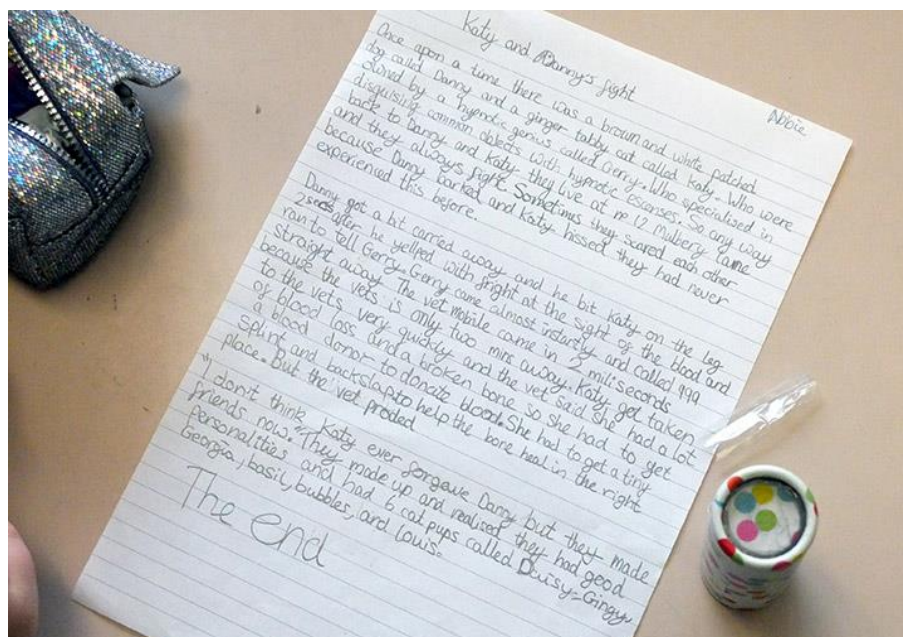 Katy and Danny's fight
Abbie
Once upon a time there was a brown and white patched
dog called Danny and a ginger tabby cat called Katy. Who were
owned by a hypnotic genius called Gerry. Who specialised in
disguising common objects with hypnotic essenses. So any way
back to Danny and Katy. they live at no 12 Mulbery Lane
and they always fight. Sometimes they scared each other
because Danny barked and Katy hissed they had never
experienced this before.
Danny got a bit carried away and he bit Katy on the leg
2secs after he yellped with fright at the sight of the blood and
ran to tell Gerry. Gerry came almost instantly and called 999
straight away. The vet mobile came in 2 mili seconds
because the vets is only two mins away. Katy got taken
to the vets very quickly and the vet said she had a lot
of blood loss and a broken bone so she had to get
a blood donor to donate blood. She had to get a tiny
splint and backslap to help the bone heal in the right
place. But the vet proded
"I don't think Katy ever forgave Danny but they made
friends now." They made up and realised they had good
personalities and had 6 cat pups called Daisy, Gingy,
Georgia, basil, bubbles, and Louis.
The end